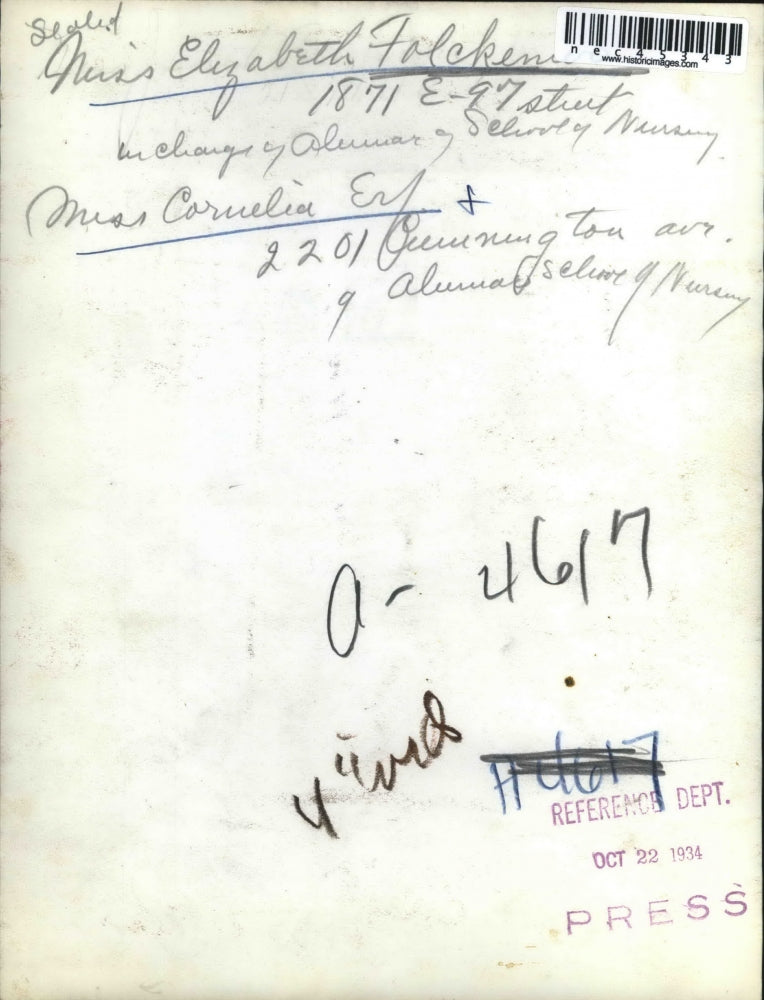 Seated
Miss Elizabeth Folckem
nec45343
www.historicimages.com
1871 E-97 street
in charge of Alumnae of School of Nursing
Miss Cornelia Erf +
2201 Cummington ave.
of Alumnae School of Nursing
a- 4617
4"
H 4617
REFERENCE DEPT.
OCT 22 1934
PRESS